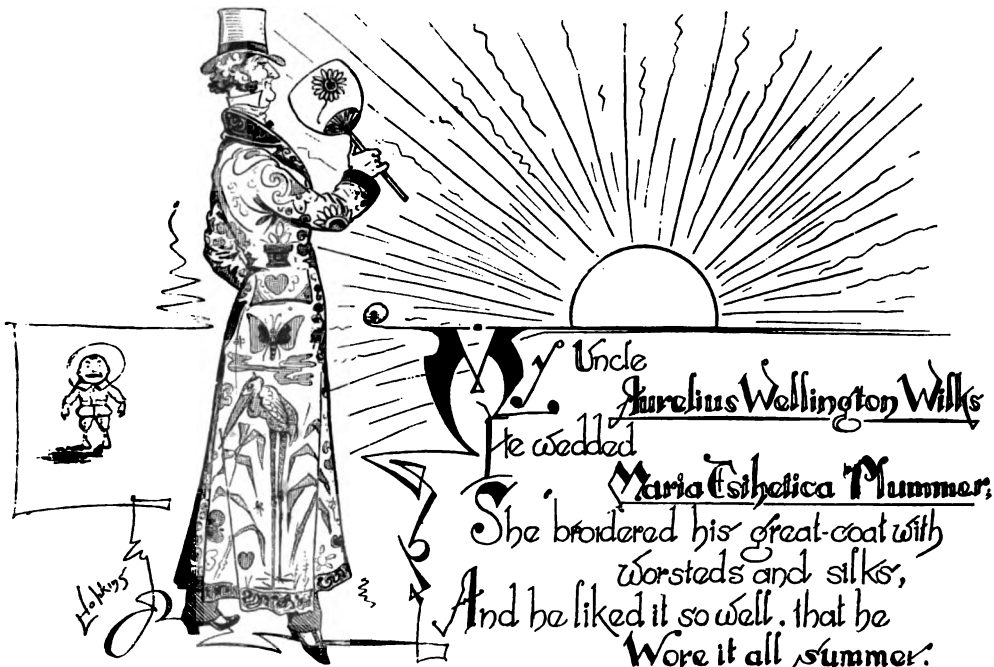 My Uncle
Aurelius Wellington Wilks
He wedded
Maria Esthetica Mummer,
She broidered his great-coat with
worsteds and silks,
And he liked it so well, that he
Wore it all summer.
Hopkins